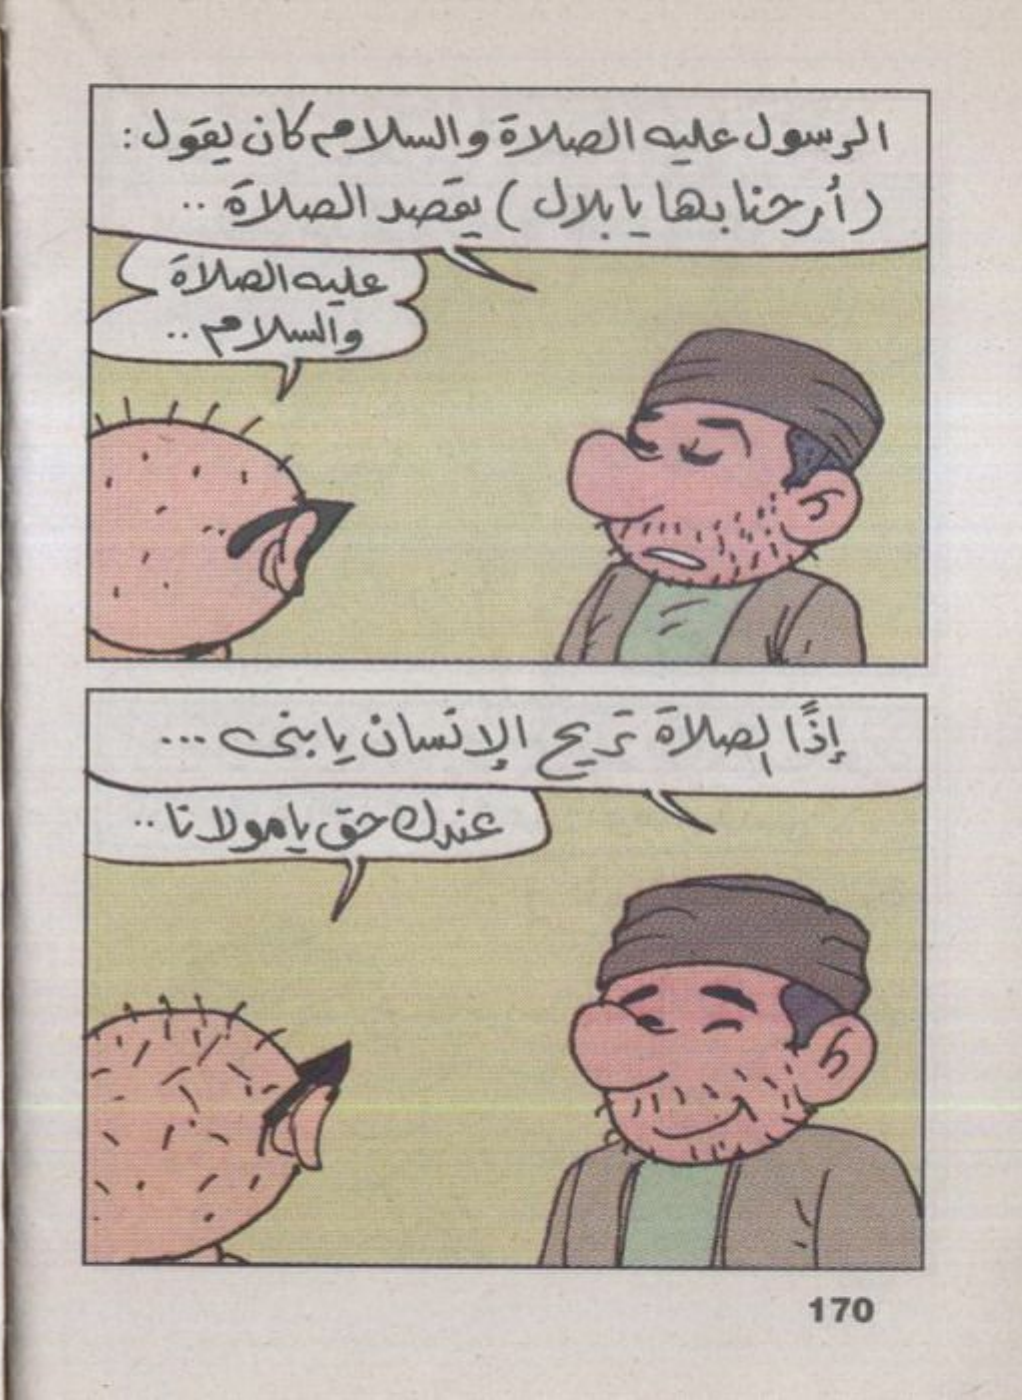 الرسول عليه الصلاة والسلام كان يقول:
(أرحنا بها يا بلال) يقصد الصلاة ..
عليه الصلاة
والسلام ..
إذًا الصلاة تريح الإنسان يا بنى ...
عندك حق يا مولانا ..
170